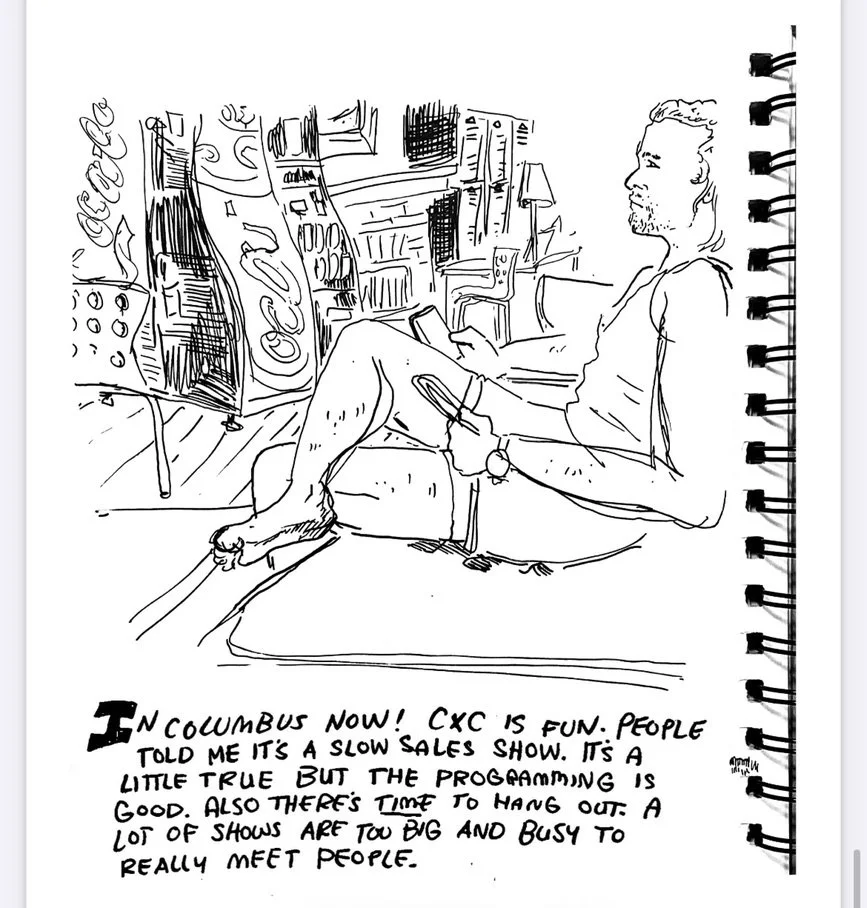 IN COLUMBUS NOW! CXC IS FUN. PEOPLE
TOLD ME IT'S A SLOW SALES SHOW. IT'S A
LITTLE TRUE BUT THE PROGRAMMING IS
GOOD. ALSO THERE'S TIME TO HANG OUT. A
LOT OF SHOWS ARE TOO BIG AND BUSY TO
REALLY MEET PEOPLE.